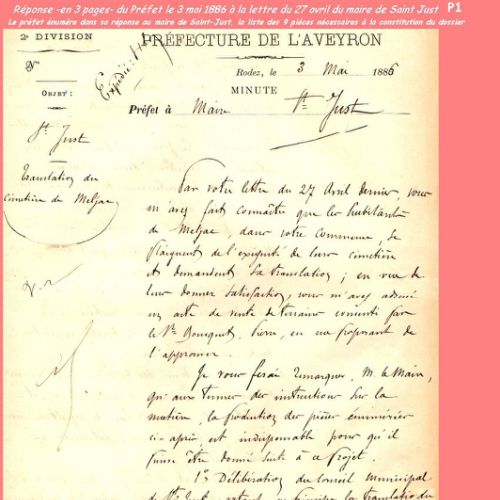 Réponse -en 3 pages- du Préfet le 3 mai 1886 à la lettre du 27 avril du maire de Saint Just P1
Le préfet énumère dans sa réponse au maire de Saint-Just, la liste des 9 pièces nécessaires à la constitution du dossier
2e DIVISION
PRÉFECTURE DE L'AVEYRON
No
Expédié
Rodez, le 3 Mai 1886
OBJET:
MINUTE
Préfet à Maire St Just
St Just
Translation du
cimetière de Meljac
Par votre lettre du 27 Avril dernier, vous
m'avez fait connaître que les habitants
de Meljac, dans votre Commune, se
plaignent de l'exiguité de leur cimetière
et demandent sa translation; en vue de
leur donner satisfaction, vous m'avez adressé
un acte de vente de terrain consenti par
le Sr Bousquet, Pierre, en me proposant de
l'approuver.
Je vous ferai remarquer, M. le Maire,
qu'aux termes des instructions sur la
matière, la production des pièces énumérées
ci-après est indispensable pour qu'il
puisse être donné suite à ce projet.
1o Délibération du Conseil municipal
de St Just, portant en principe la translation du